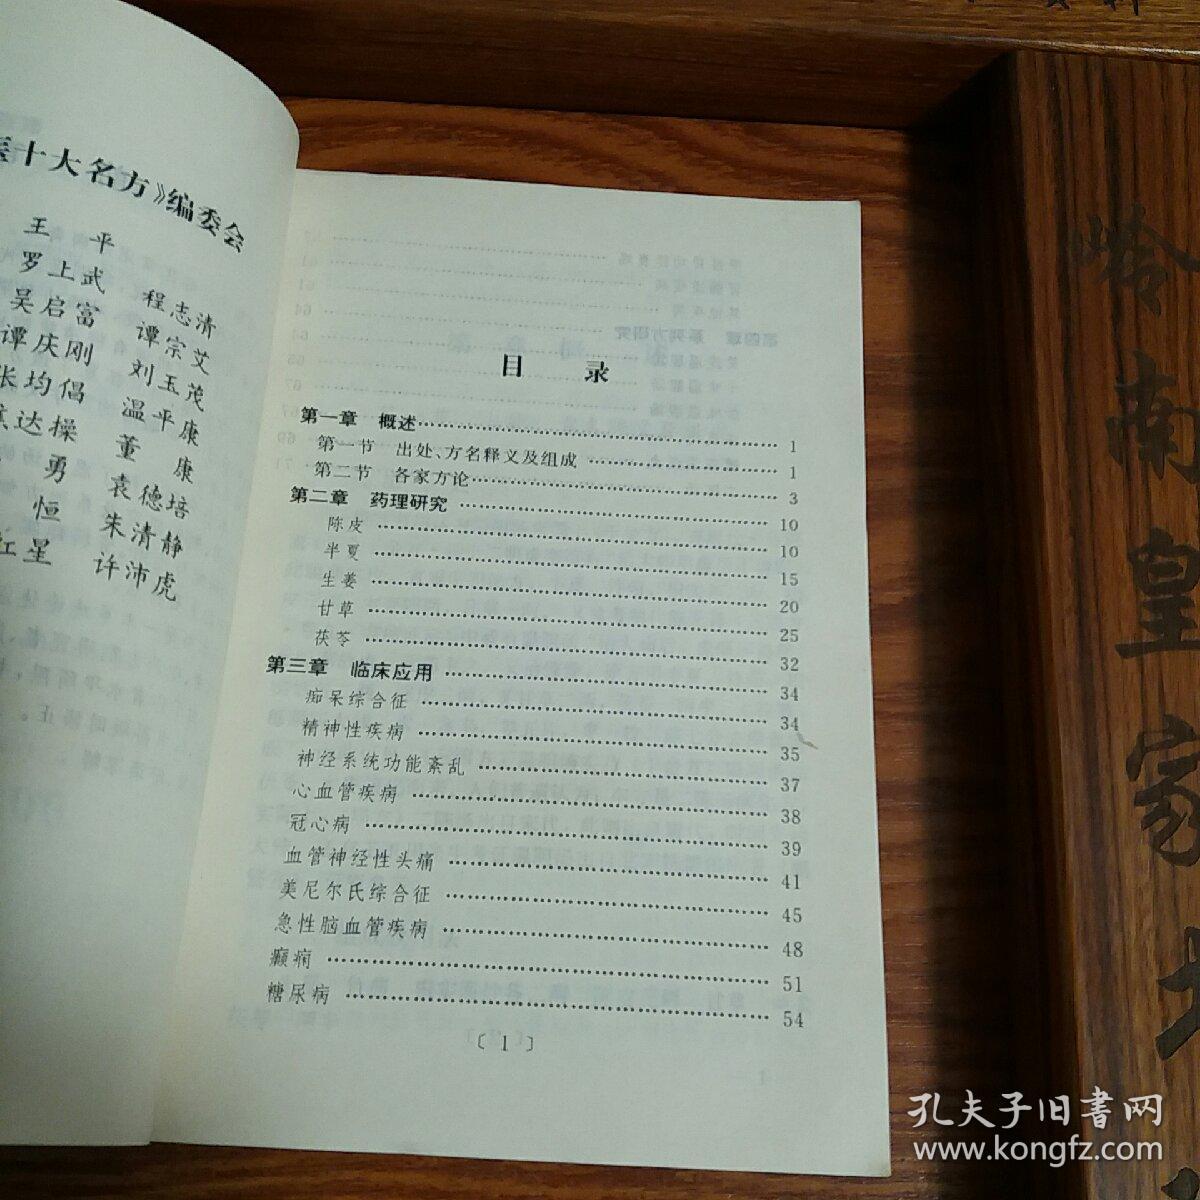 十大名方》编委会
王 平
罗上武 程志清
吴启富 谭宗艾
谭庆刚 刘玉茂
张均倡 温平康
达操 董 康
勇 袁德培
恒 朱清静
红星 许沛虎
目 录
第一章 概述…… 1
第一节 出处、方名释义及组成…… 1
第二节 各家方论…… 3
第二章 药理研究…… 10
陈皮…… 10
半夏…… 15
生姜…… 20
甘草…… 25
茯苓…… 32
第三章 临床应用…… 34
痴呆综合征…… 34
精神性疾病…… 35
神经系统功能紊乱…… 37
心血管疾病…… 38
冠心病…… 39
血管神经性头痛…… 41
美尼尔氏综合征…… 45
急性脑血管疾病…… 48
癫痫…… 51
糖尿病…… 54
〔 1 〕
岭南皇家
孔夫子旧书网
www.kongfz.com